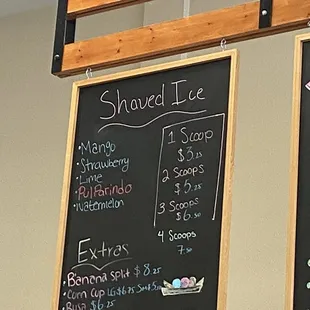 Shaved Ice
• Mango
• Strawberry
• Lime
• Pulparindo
• Watermelon
1 Scoop
$3.25
2 Scoops
$5.25
3 Scoops
$6.50
4 Scoops
7.50
Extras
• Banana split $8.25
• Corn Cup LG $6.25
$6.25